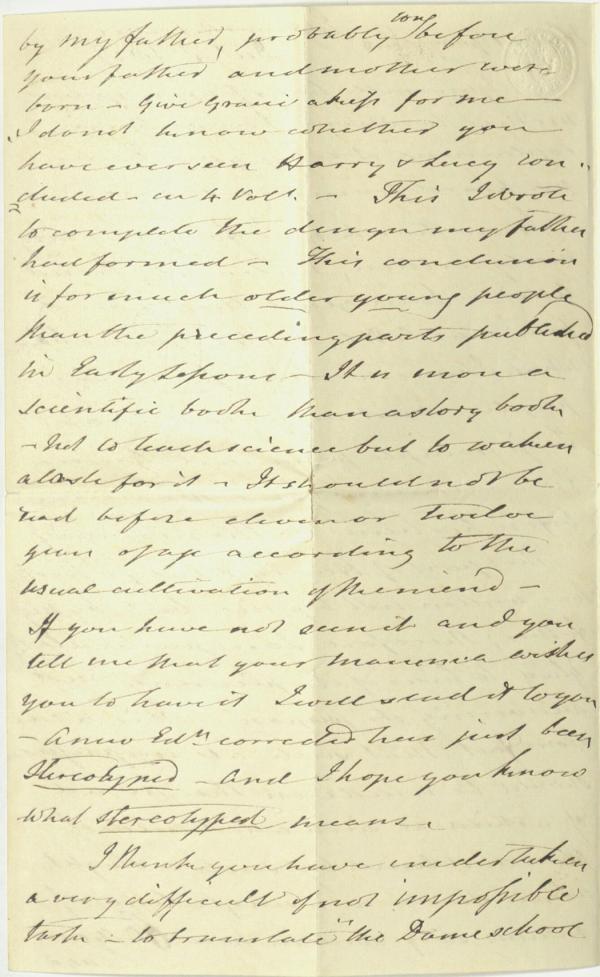 by my father, probably long before
your father and mother were
born – Give Gracie a kiss for me –
I don't know whether you
have ever seen Harry & Lucy con-
cluded – in 4 Vols. – This I wrote
to complete the design my father
had formed – This conclusion
is for much older young people
than the preceding parts published
in Early Lessons – It is more a
scientific book than a story book
– Not to teach science but to waken
a taste for it – It should not be
read before eleven or twelve
years of age according to the
usual cultivation of the mind –
If you have not seen it and you
tell me that your mamma wishes
you to have it I will send it to you
– A new Edn corrected has just been
Stereotyped – and I hope you know
what stereotyped means.
I think you have undertaken
a very difficult if not impossible
task – to translate "the Dame school